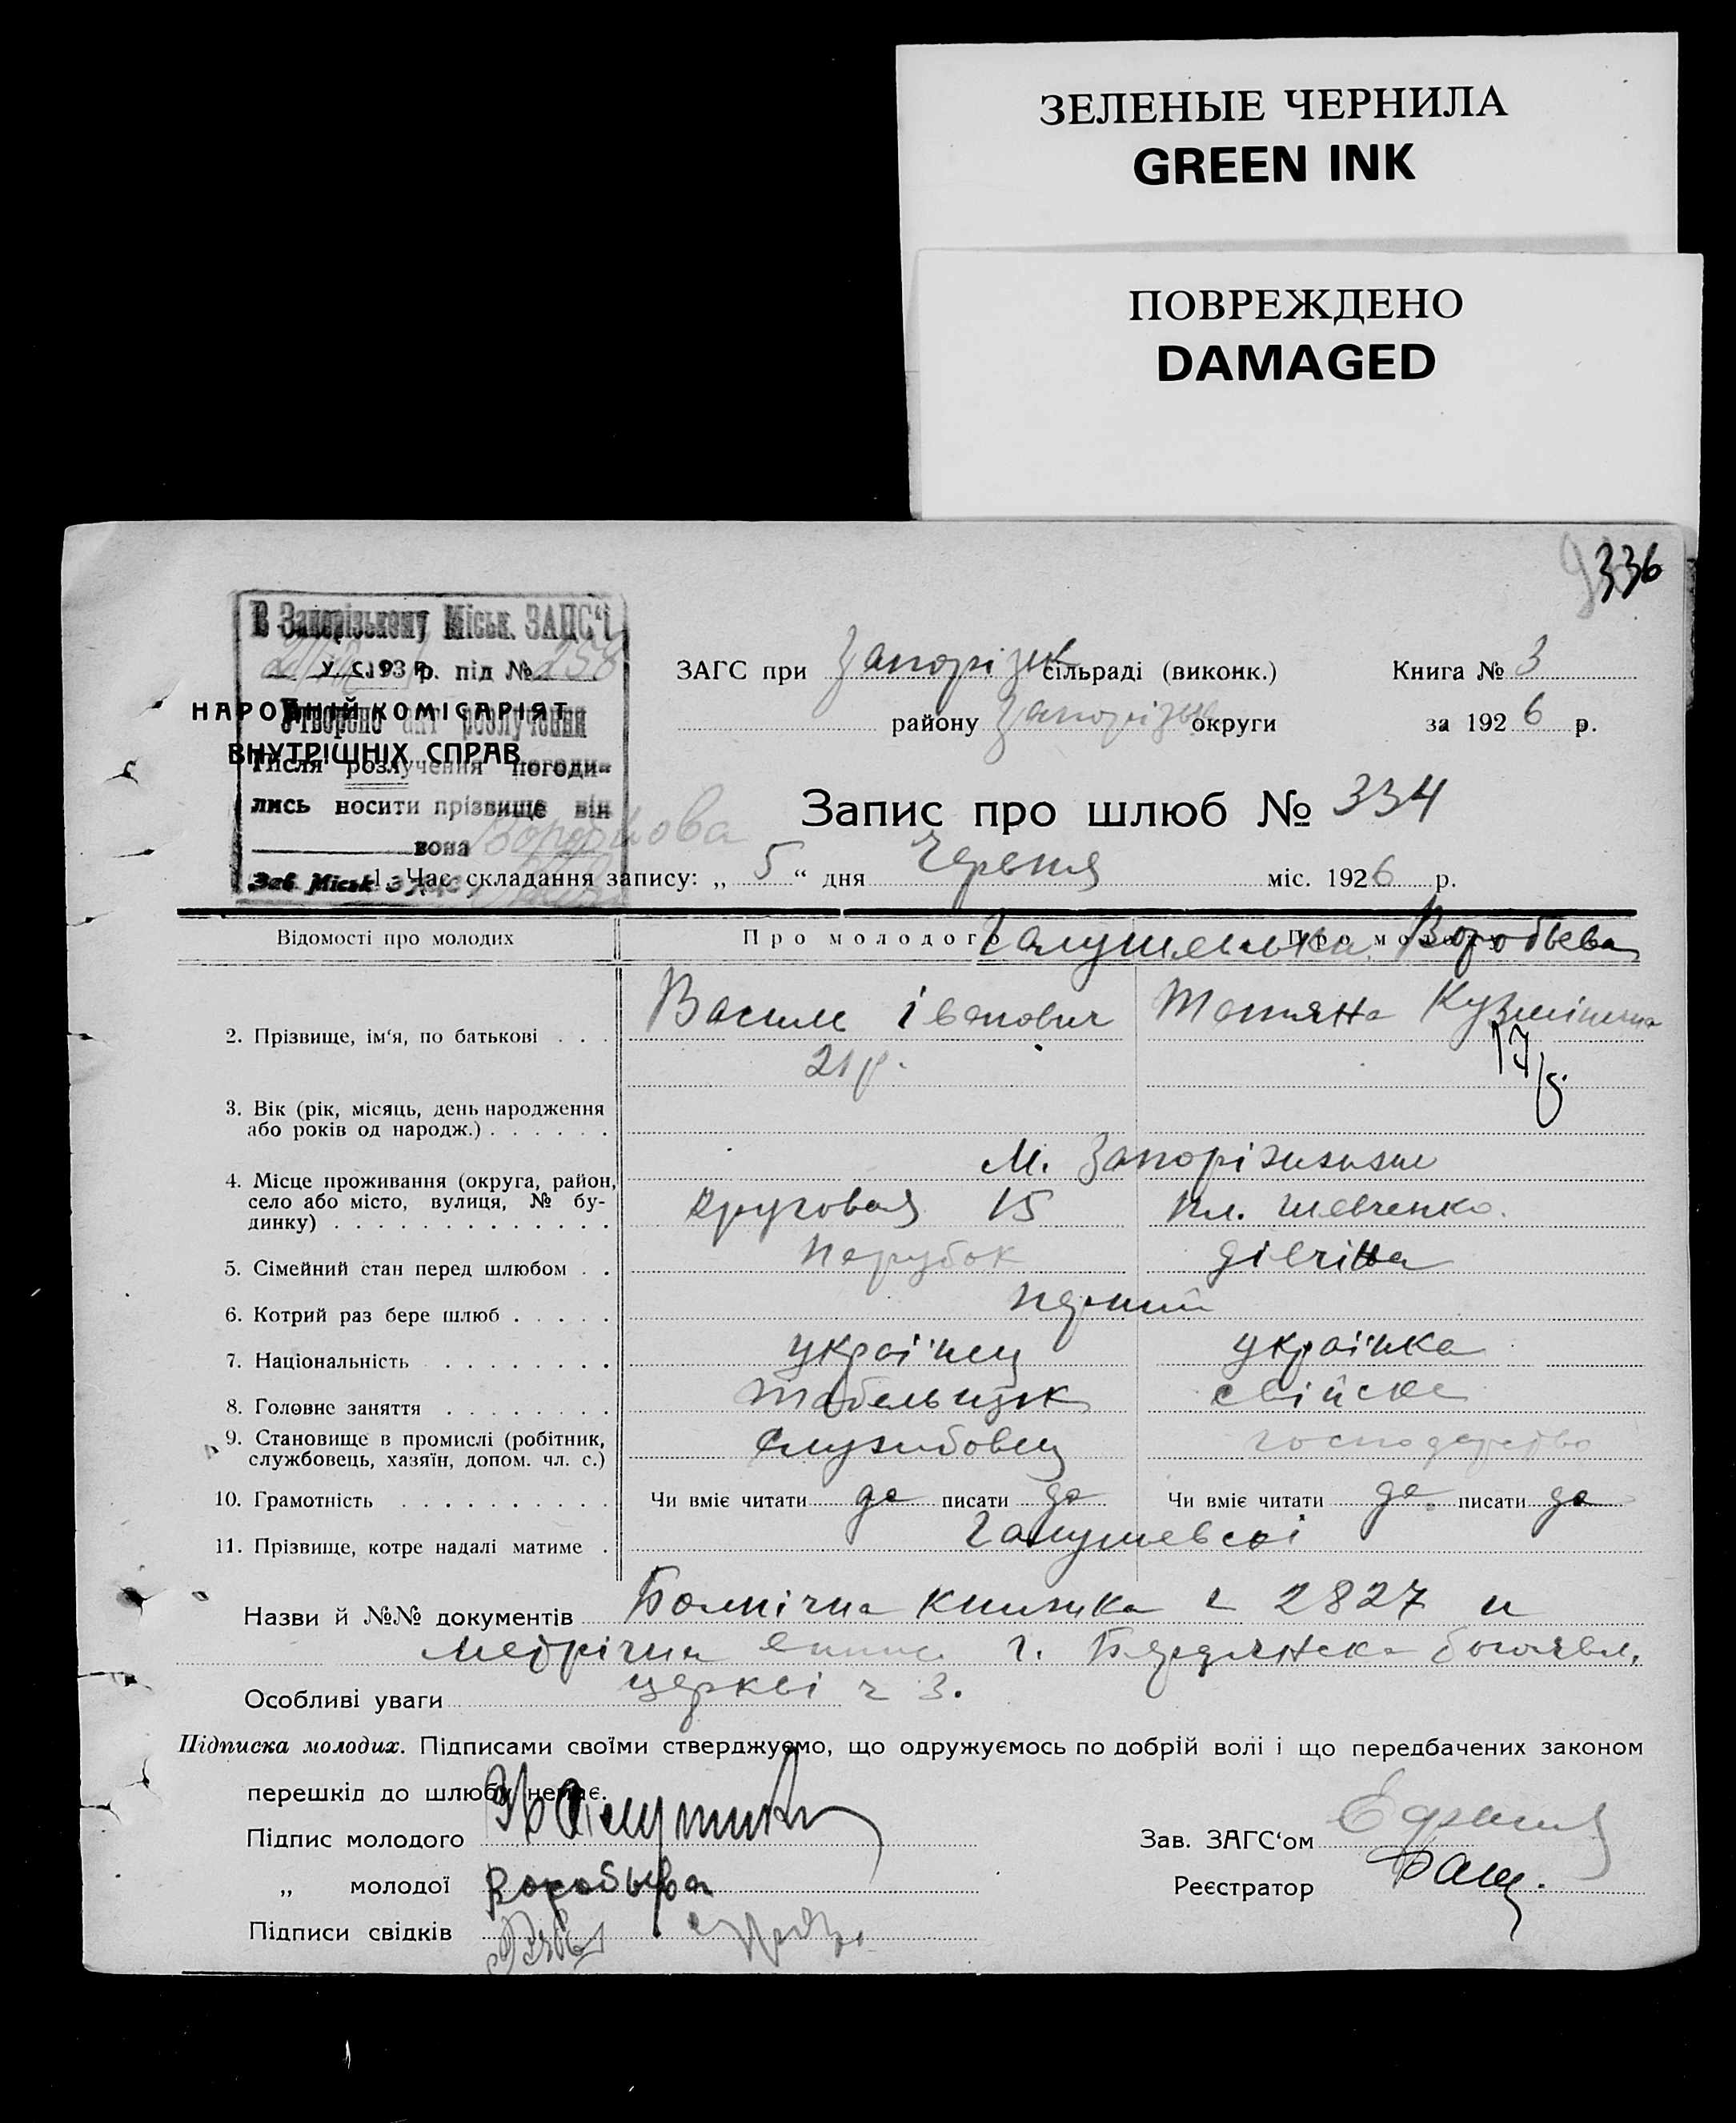 ЗЕЛЕНЫЕ ЧЕРНИЛА
GREEN INK
ПОВРЕЖДЕНО
DAMAGED
336
В Запорізькому Міськ. ЗАГС'і
193 р. під № 258
Утворено акт розлучення
Після розлучення погоди-
лись носити прізвище він
вона
Зав Міськ ЗАГС
У. С. Р. Р.
НАРОДНІЙ КОМІСАРІЯТ
ВНУТРІШНІХ СПРАВ
ЗАГС при Запорізьк сільраді (виконк.) Книга № 3
району Запорізьк округи за 1926 р.
Запис про шлюб № 334
1. Час складання запису: „ 5 “ дня Червня міс. 1926 р.
Відомості про молодих Про молодого Про молоду
Воробьева
2. Прізвище, ім'я, по батькові . . . Василь Іванович Татяна Кузмінична
21 р. 17 р.
3. Вік (рік, місяць, день народження
або років од народж.) . . . . . .
4. Місце проживання (округа, район, м. Запоріжжя
село або місто, вулиця, № бу- Круговая 15 пл. Шевченко.
динку) . . . . . . . . . . . . .
5. Сімейний стан перед шлюбом . . Парубок дівчіна
6. Котрий раз бере шлюб . . . . . перший
7. Національність . . . . . . . . українец українка
8. Головне заняття . . . . . . . . табельщик свійске
9. Становище в промислі (робітник, службовец господарство
службовець, хазяїн, допом. чл. с.)
10. Грамотність . . . . . . . . . . Чи вміє читати да писати да Чи вміє читати да писати да
11. Прізвище, котре надалі матиме .
Назви й №№ документів книжка ч 2827 и
метрічна г. Бердянска
Особливі уваги церкві ч 3.
Підписка молодих. Підписами своїми стверджуємо, що одружуємось по добрій волі і що передбачених законом
перешкід до шлюбу немає.
Підпис молодого Зав. ЗАГС'ом
„ молодої Воробьева Реєстратор
Підписи свідків